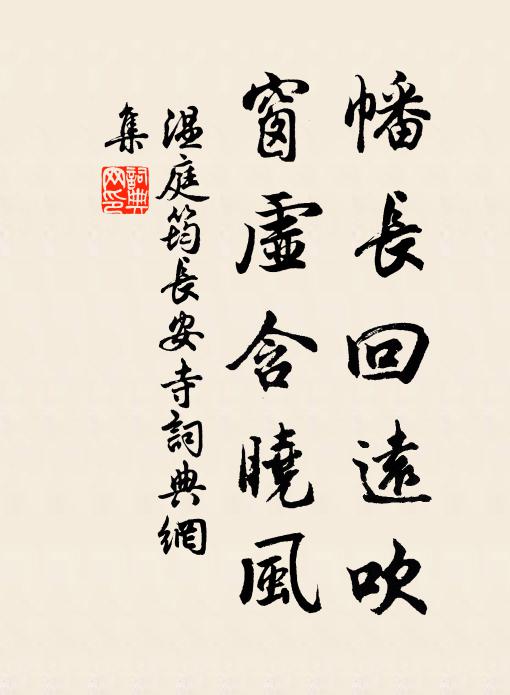 幡長回遠吹
窗虛含曉風
溫庭筠長安寺詞典網
集
詞典網印